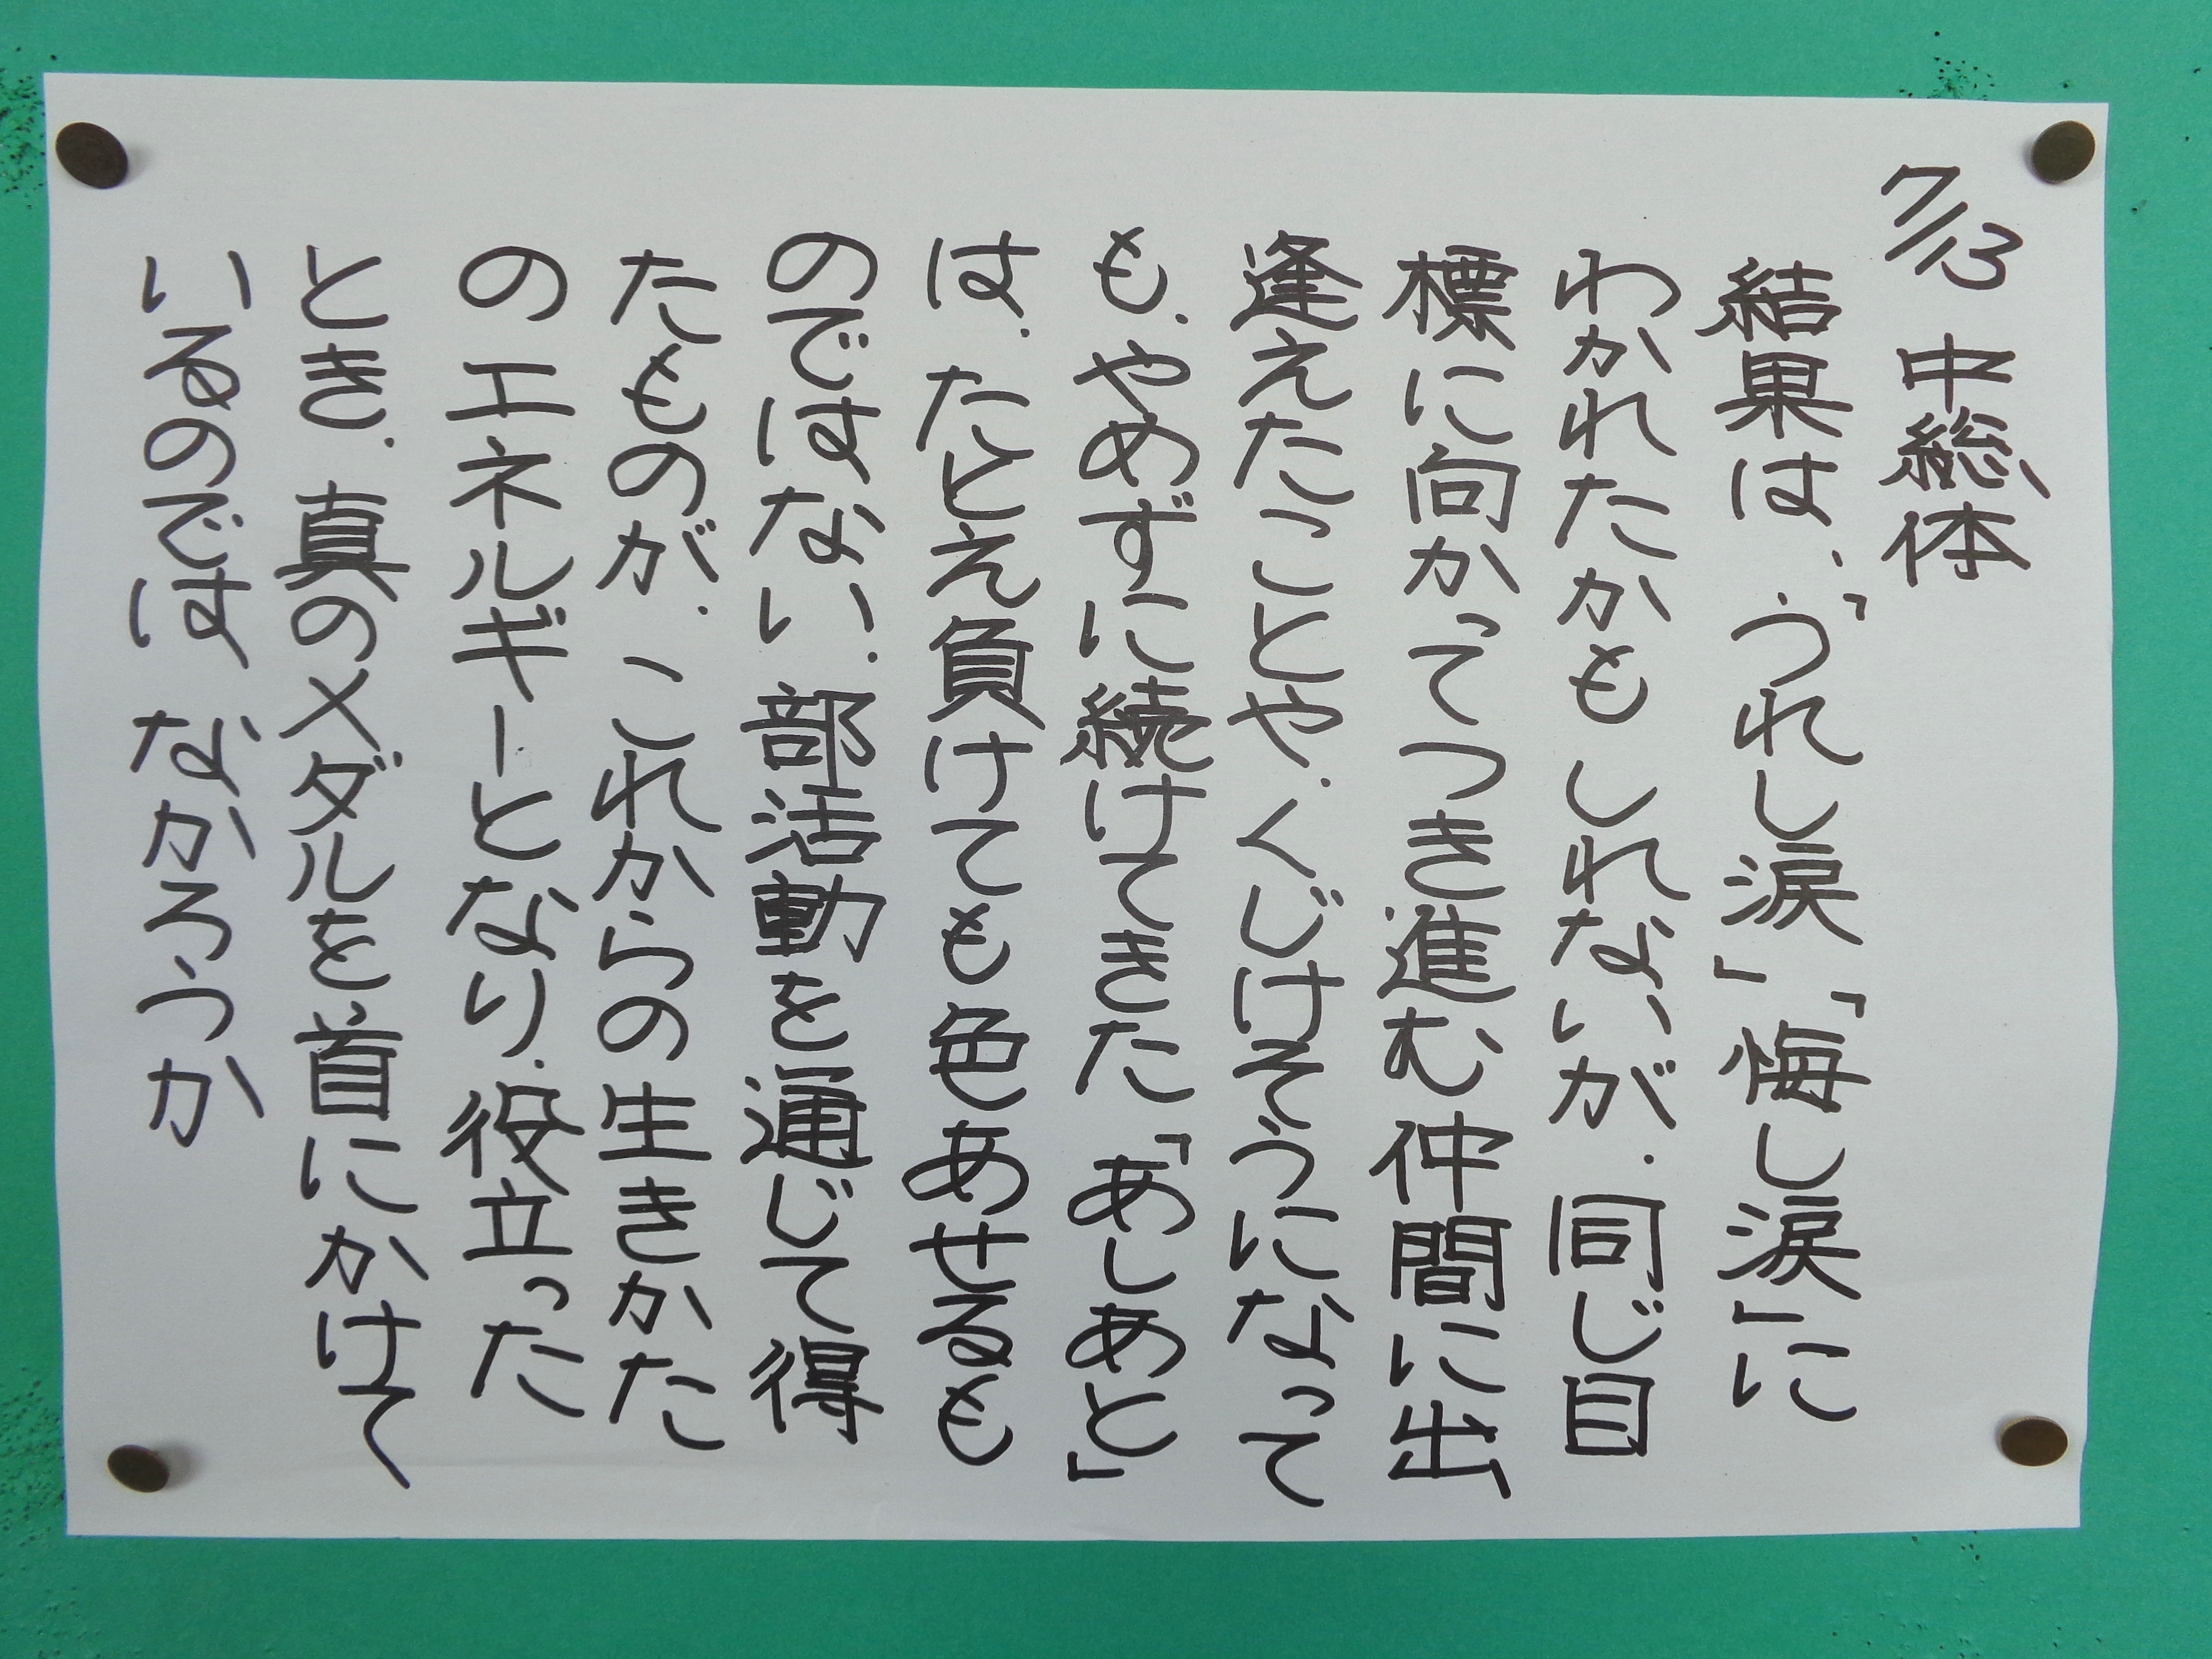 7/13 中総体
結果は、「うれし涙」「悔し涙」に
わかれたかもしれないが、同じ目
標に向かってつき進む仲間に出
逢えたことや、くじけそうになって
も、やめずに続けてきた「あしあと」
は、たとえ負けても色あせるも
のではない、部活動を通じて得
たものが、これからの生きかた
のエネルギーとなり、役立った
とき、真のメダルを、首にかけて
いるのでは、なかろうか